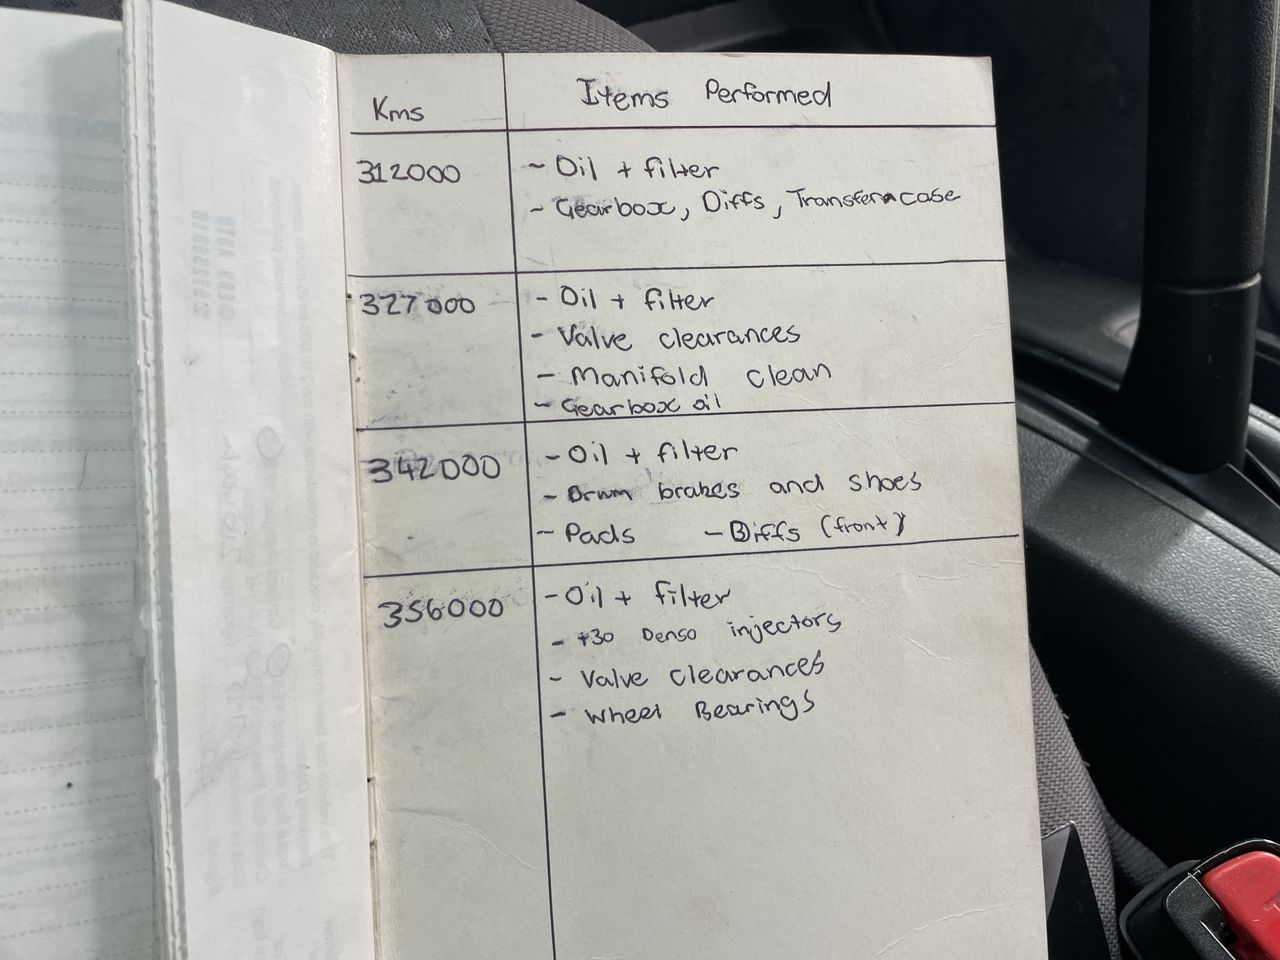 Kms Items Performed
312000 - Oil + filter
- Gearbox, Diffs, Transfer case
327000 - Oil + filter
- Valve clearances
- Manifold clean
- Gearbox oil
342000 - Oil + filter
- Drum brakes and shoes
- Pads - Diffs (front)
356000 - Oil + filter
- +30 Denso injectors
- Valve clearances
- Wheel Bearings